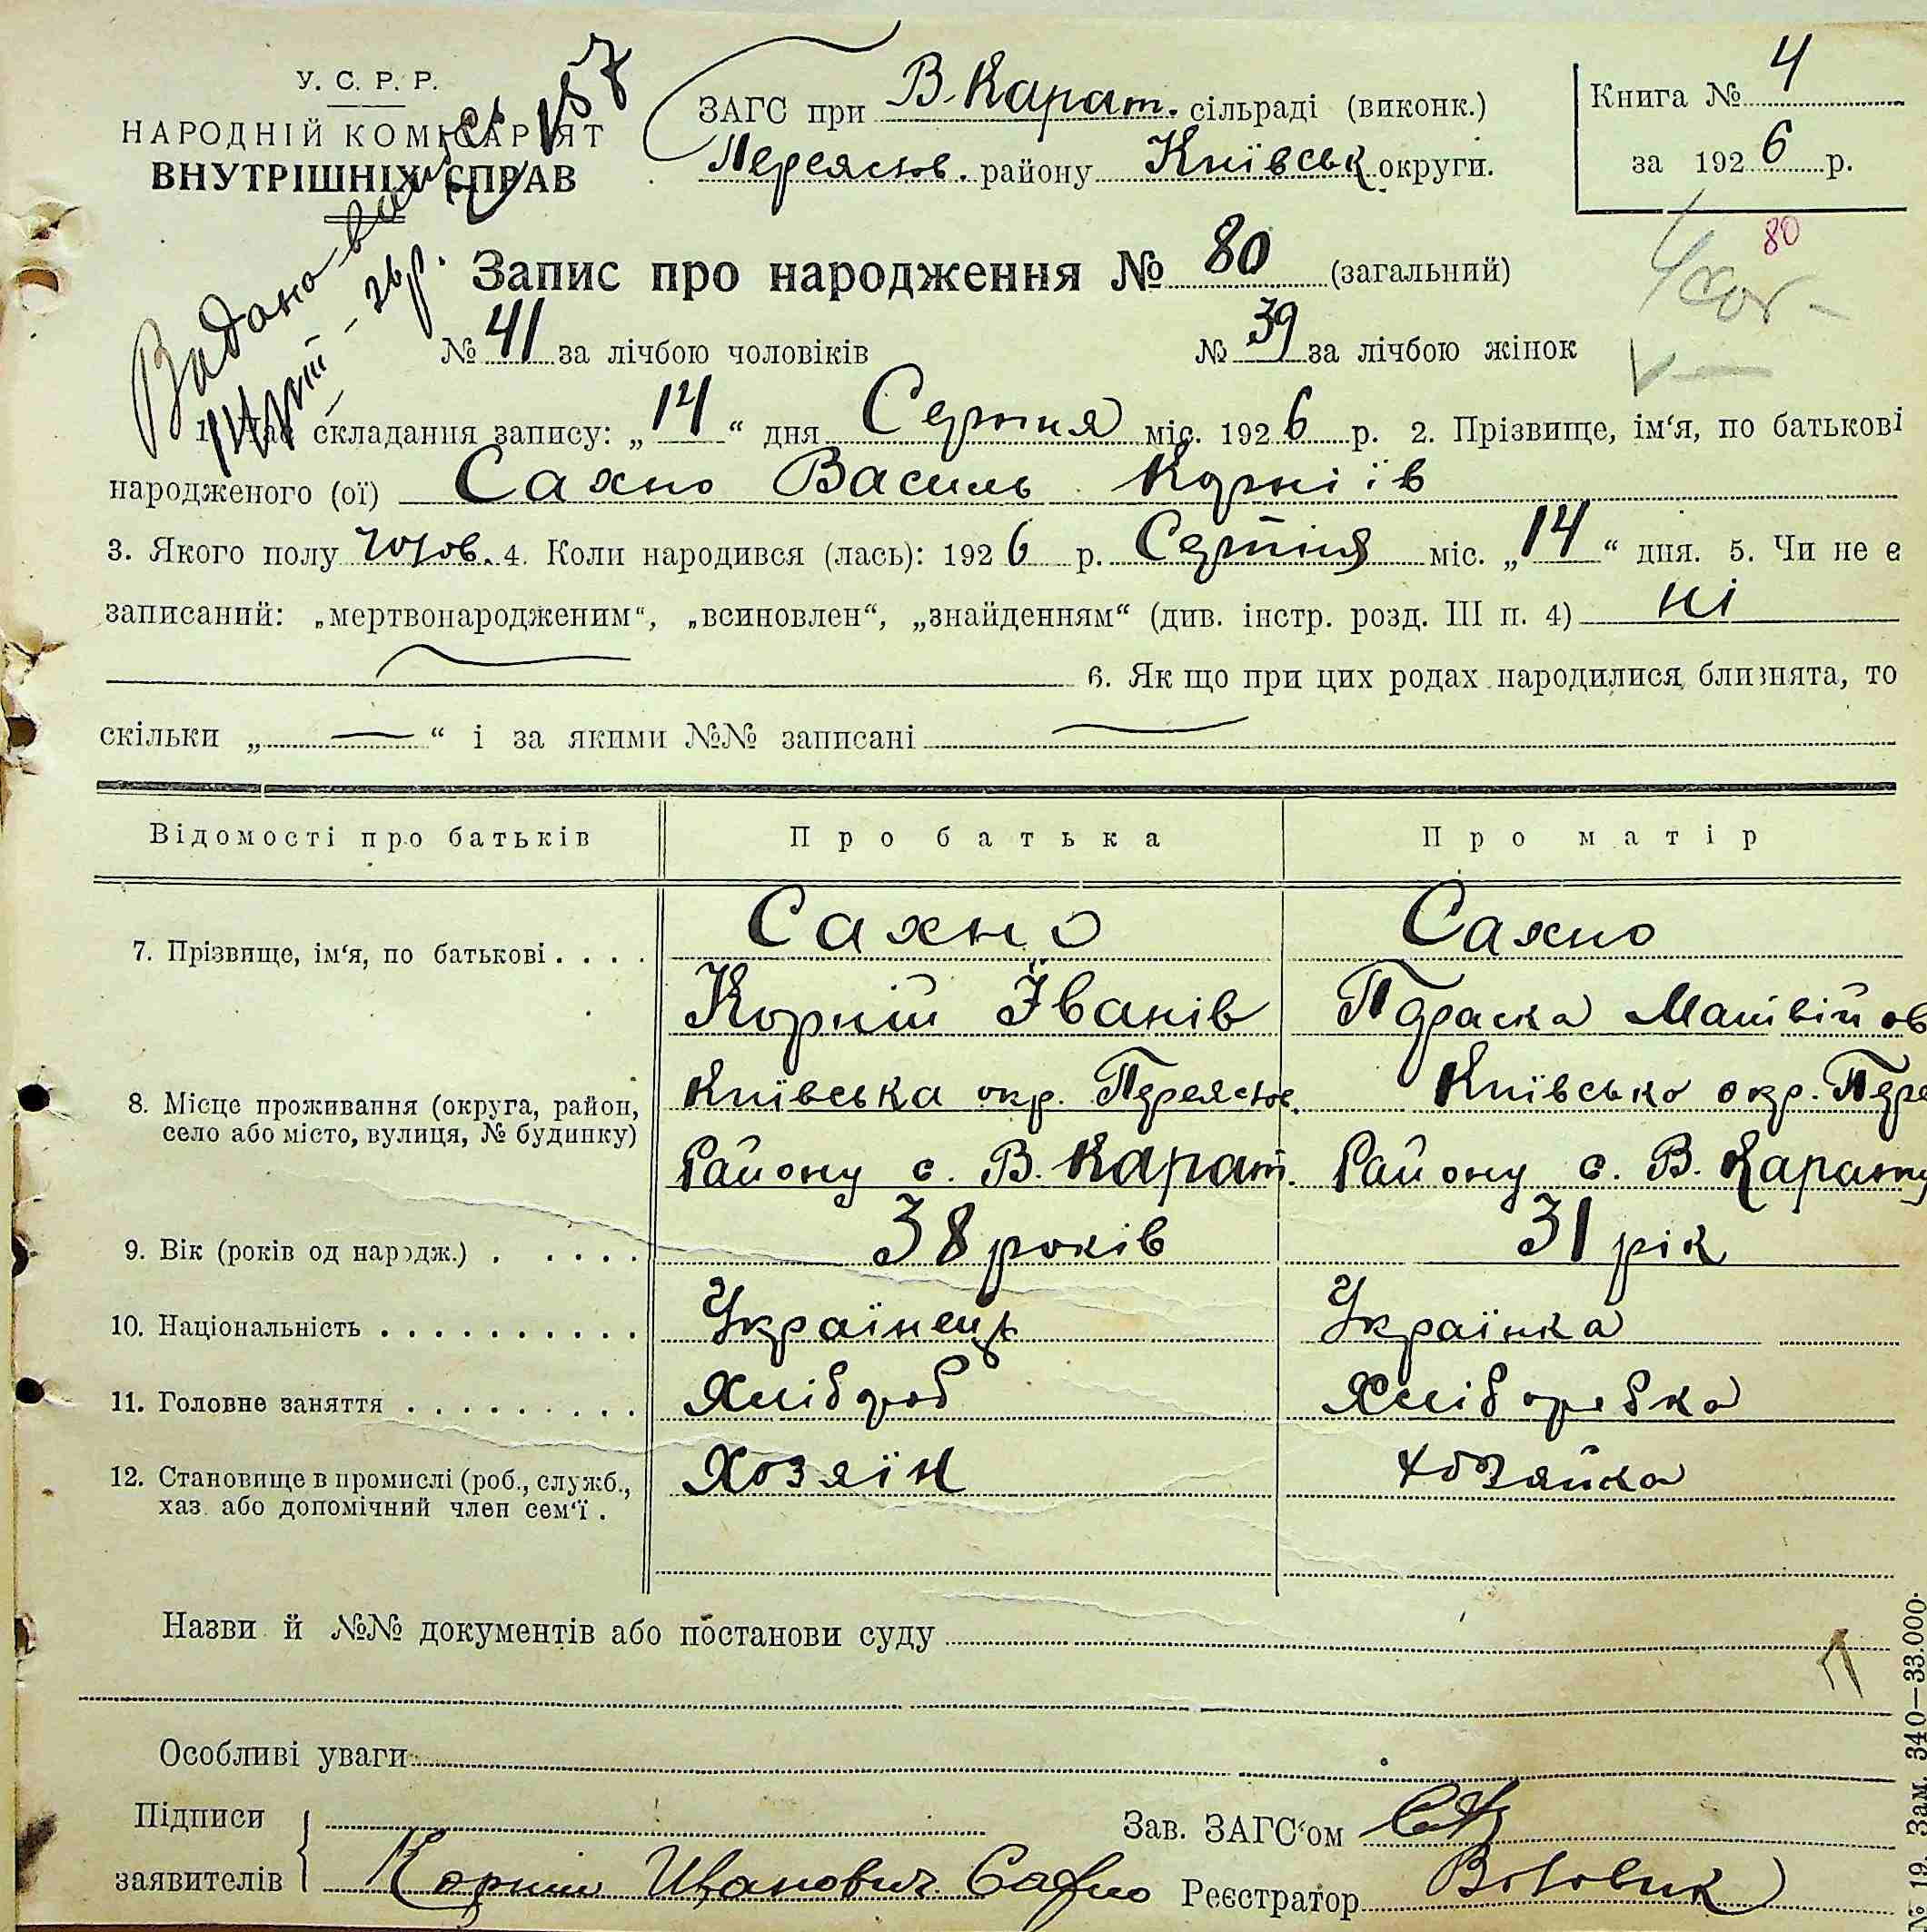 У. С. Р. Р.
НАРОДНІЙ КОМІСАРІЯТ
ВНУТРІШНІХ СПРАВ
ЗАГС при В. Карат. сільраді (виконк.)
Переяслов. району Київськ округи.
Книга № 4
за 1926 р.
80
157
Запис про народження № 80 (загальний)
№ 41 за лічбою чоловіків № 39 за лічбою жінок
1. Час складання запису: „14“ дня Серпня міс. 1926 р. 2. Прізвище, ім‘я, по батькові
народженого (ої) Сахно Василь Корніїв
3. Якого полу чолов. 4. Коли народився (лась): 1926 р. Серпня міс. „14“ дня. 5. Чи не є
записаний: „мертвонародженим“, „всиновлен“, „знайденням“ (див. інстр. розд. III п. 4) ні
6. Як що при цих родах народилися близнята, то
скільки „—“ і за якими №№ записані
Відомості про батьків Про батька Про матір
7. Прізвище, ім‘я, по батькові . . . . Сахно Сахно
Корній Іванів Параска Матвійов
8. Місце проживання (округа, район, село або місто, вулиця, № будинку) Київська окр. Переяслов. Київсько окр. Пере
Району с. В. Карат. Району с. В. Карату
9. Вік (років од народж.) . . . . . 38 років 31 рік
10. Національність . . . . . . . . . . Українець Українка
11. Головне заняття . . . . . . . . . Хлібороб Хліборобка
12. Становище в промислі (роб., служб., хаз. або допомічний член сем‘ї . Хозяїн хозяйка
Назви й №№ документів або постанови суду
Особливі уваги
Підписи
заявителів Корній Иванович Сахно
Зав. ЗАГС‘ом
Реєстратор Воловик
№ 19. Зам. 340—33.000.